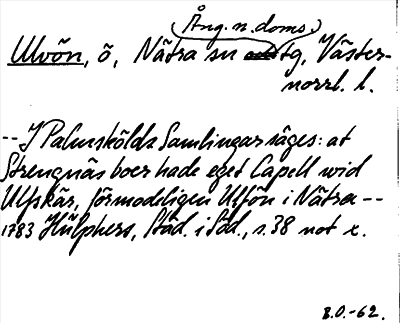 (Ång. n. doms.)
Ulvön, ö, Nätra sn tg, Väster-
norrl. l.
-- I Palmskölds Samlingar säges: at
Strengnäs boer hade eget Capell wid
Ulfskär, förmodeligen Ulfön i Nätra --
1783 Hülphers, Städ. i Söd., s. 38 not x.
B.O.-62.